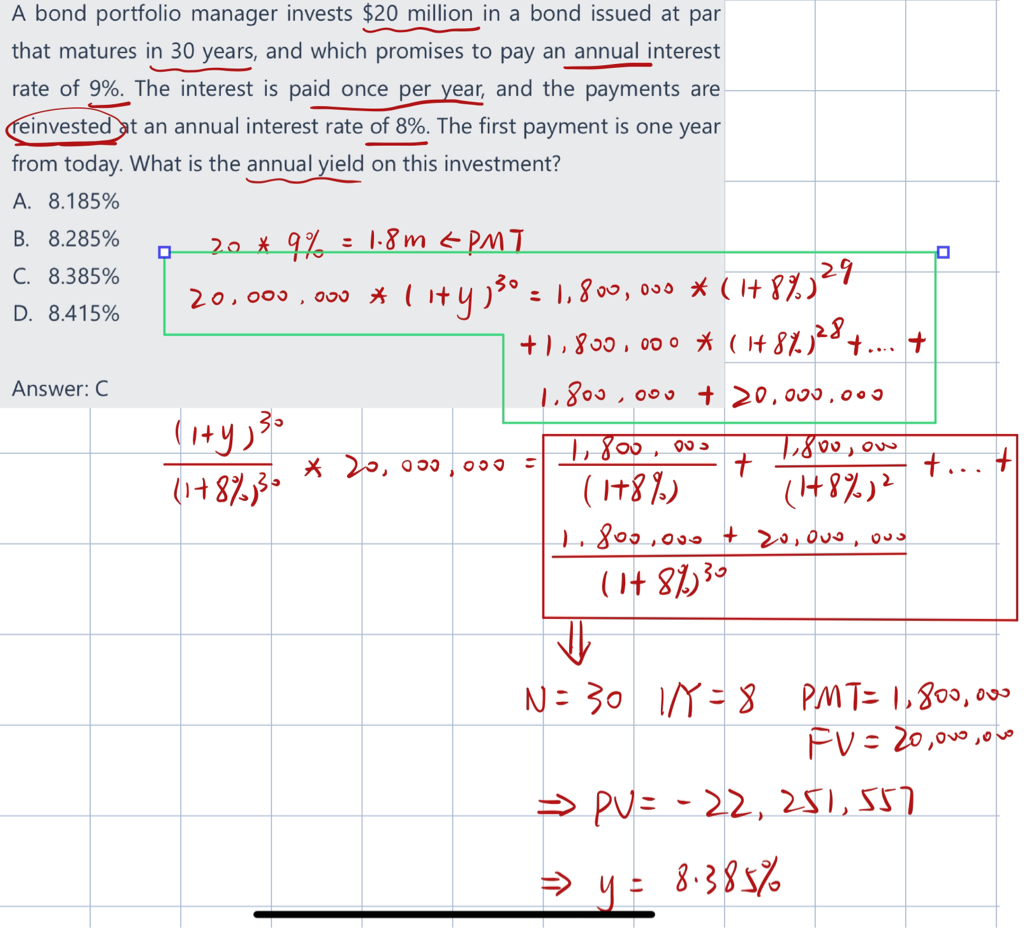 A bond portfolio manager invests $20 million in a bond issued at par
that matures in 30 years, and which promises to pay an annual interest
rate of 9%. The interest is paid once per year, and the payments are
reinvested at an annual interest rate of 8%. The first payment is one year
from today. What is the annual yield on this investment?
A. 8.185%
B. 8.285%
C. 8.385%
D. 8.415%
Answer: C
20 * 9% = 1.8m ← PMT
20,000,000 * (1+y)^30 = 1,800,000 * (1+8%)^29
+1,800,000 * (1+8%)^28 + .... +
1,800,000 + 20,000,000
(1+y)^30 / (1+8%)^30 * 20,000,000 = 1,800,000 / (1+8%) + 1,800,000 / (1+8%)^2 + ... +
1,800,000 + 20,000,000 / (1+8%)^30
⇓
N = 30 I/Y = 8 PMT = 1,800,000
FV = 20,000,000
⇒ PV = -22,251,557
⇒ y = 8.385%